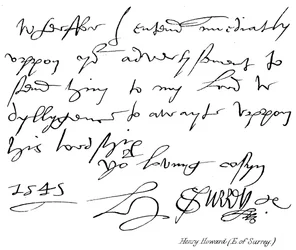 Wherfor I entend imediatly
uppon yor advertisement to
send hym to my lord w
dyllygence to awayte uppon
his lordship
yor loving cosyn
1545 H Surrey
Henry Howard (E. of Surrey.)